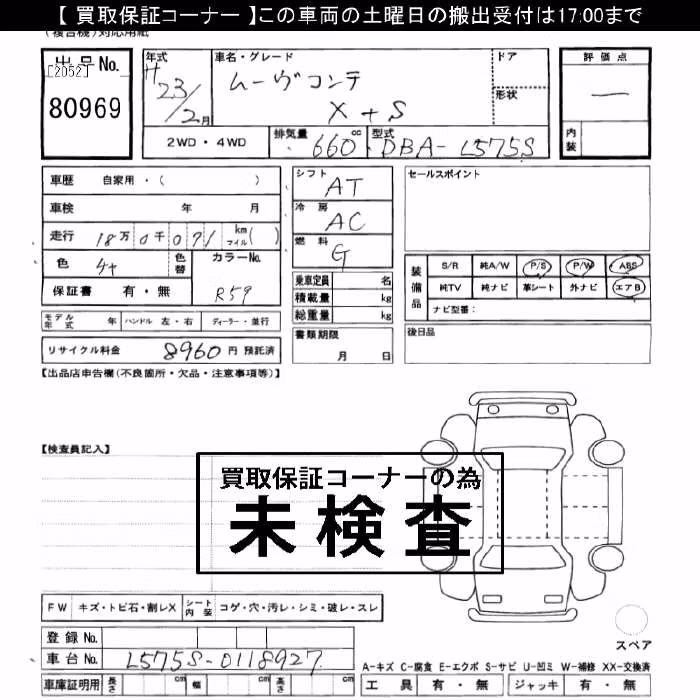 【 買取保証コーナー 】この車両の土曜日の搬出受付は17:00まで
(複合機)対応用紙
出品No.
[2052]
80969
年式
H23/2月
車名・グレード
ムーヴコンテ
X+S
ドア
形状
評価点
—
内装
2WD・4WD
排気量
660 cc
型式
DBA-L575S
車歴 自家用・( )
車検 年 月
走行 18万0千071 km マイル( )
色
色替
カラーNo.
R59
保証書 有・無
シフト
AT
冷房
AC
燃料
G
乗車定員 名
積載量 kg
総重量 kg
セールスポイント
装備品
S/R 純A/W P/S P/W ABS
純TV 純ナビ 革シート 外ナビ エアB
ナビ型番:
モデル年式 年 ハンドル 左・右 ディーラー・並行
リサイクル料金 8960 円 預託済
書類期限
月 日
後日品
【出品店申告欄(不良箇所・欠品・注意事項等)】
【検査員記入】
買取保証コーナーの為
未検査
FW キズ・トビ石・割レX シート内装 コゲ・穴・汚レ・シミ・破レ・スレ
登録No.
車台No. L575S-0118927
車庫証明用 長さ cm 幅 cm 高さ cm
スペア
A-キズ C-腐食 E-エクボ S-サビ U-凹ミ W-補修 XX-交換済
工具 有・無 ジャッキ 有・無